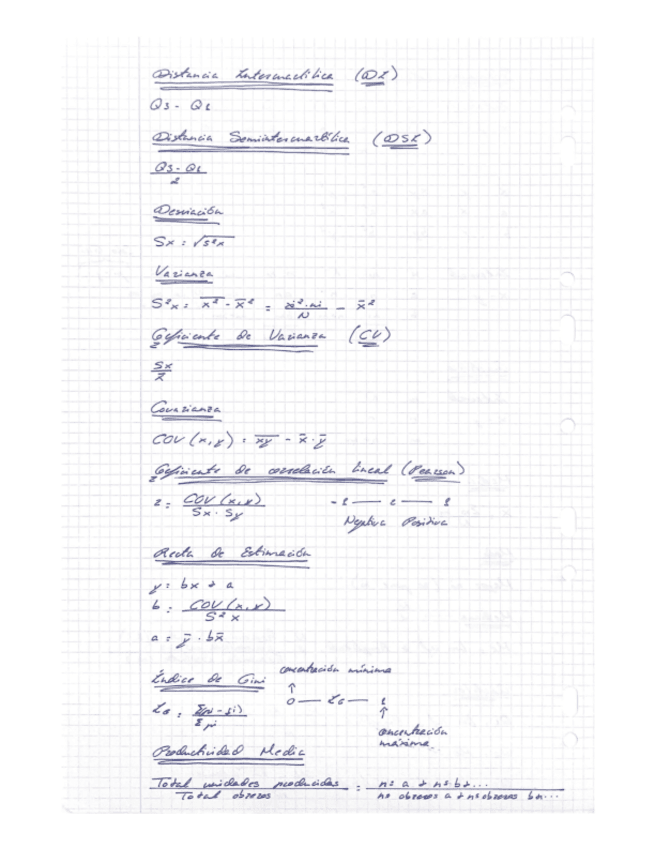 Distancia Intercuartílica (DI)
Q3 - Q1
Distancia Semiintercuartílica (DSI)
Q3 - Q1
2
Desviación
Sx = √s²x
Varianza
S²x = x² - x̄² = xi²·ni / N - x̄²
Coeficiente de Varianza (CV)
Sx
x̄
Covarianza
COV (x,y) = xy - x̄ · ȳ
Coeficiente de correlación lineal (Pearson)
r = COV (x,y) / Sx · Sy
-1 — 0 — 1
Negativa Positiva
Recta de Estimación
y = bx + a
b = COV (x,y) / S²x
a = ȳ - bx̄
Índice de Gini
concentración mínima
↑
IG = Σ(pi - qi) / Σpi
0 — IG — 1
↑
concentración
máxima
Productividad Media
Total unidades producidas / Total obreros = nº a + nº b + ... / nº obreros a + nº obreros b + ...